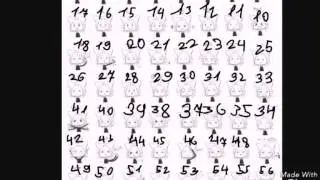 17 16 15 14 13 12 11 10
18 19 20 21 22 23 24 25
26 27 28 29 30 31 32 33
41 40 39 38 37 36 35 34
42 43 44 45 46 47 48
49 50 51 52 53 54 55 56
Made With